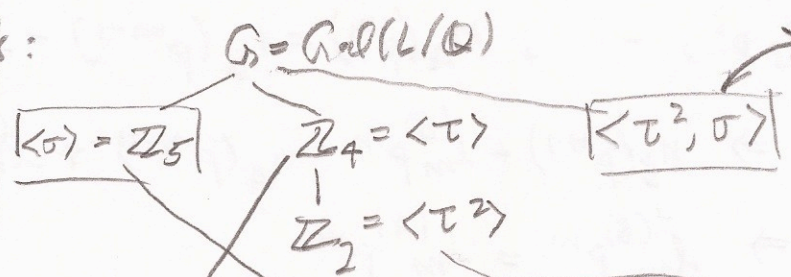 s:
G = Gal(L/Q)
<σ> = ℤ₅ ℤ₄ = <τ> <τ², σ>
ℤ₂ = <τ²>